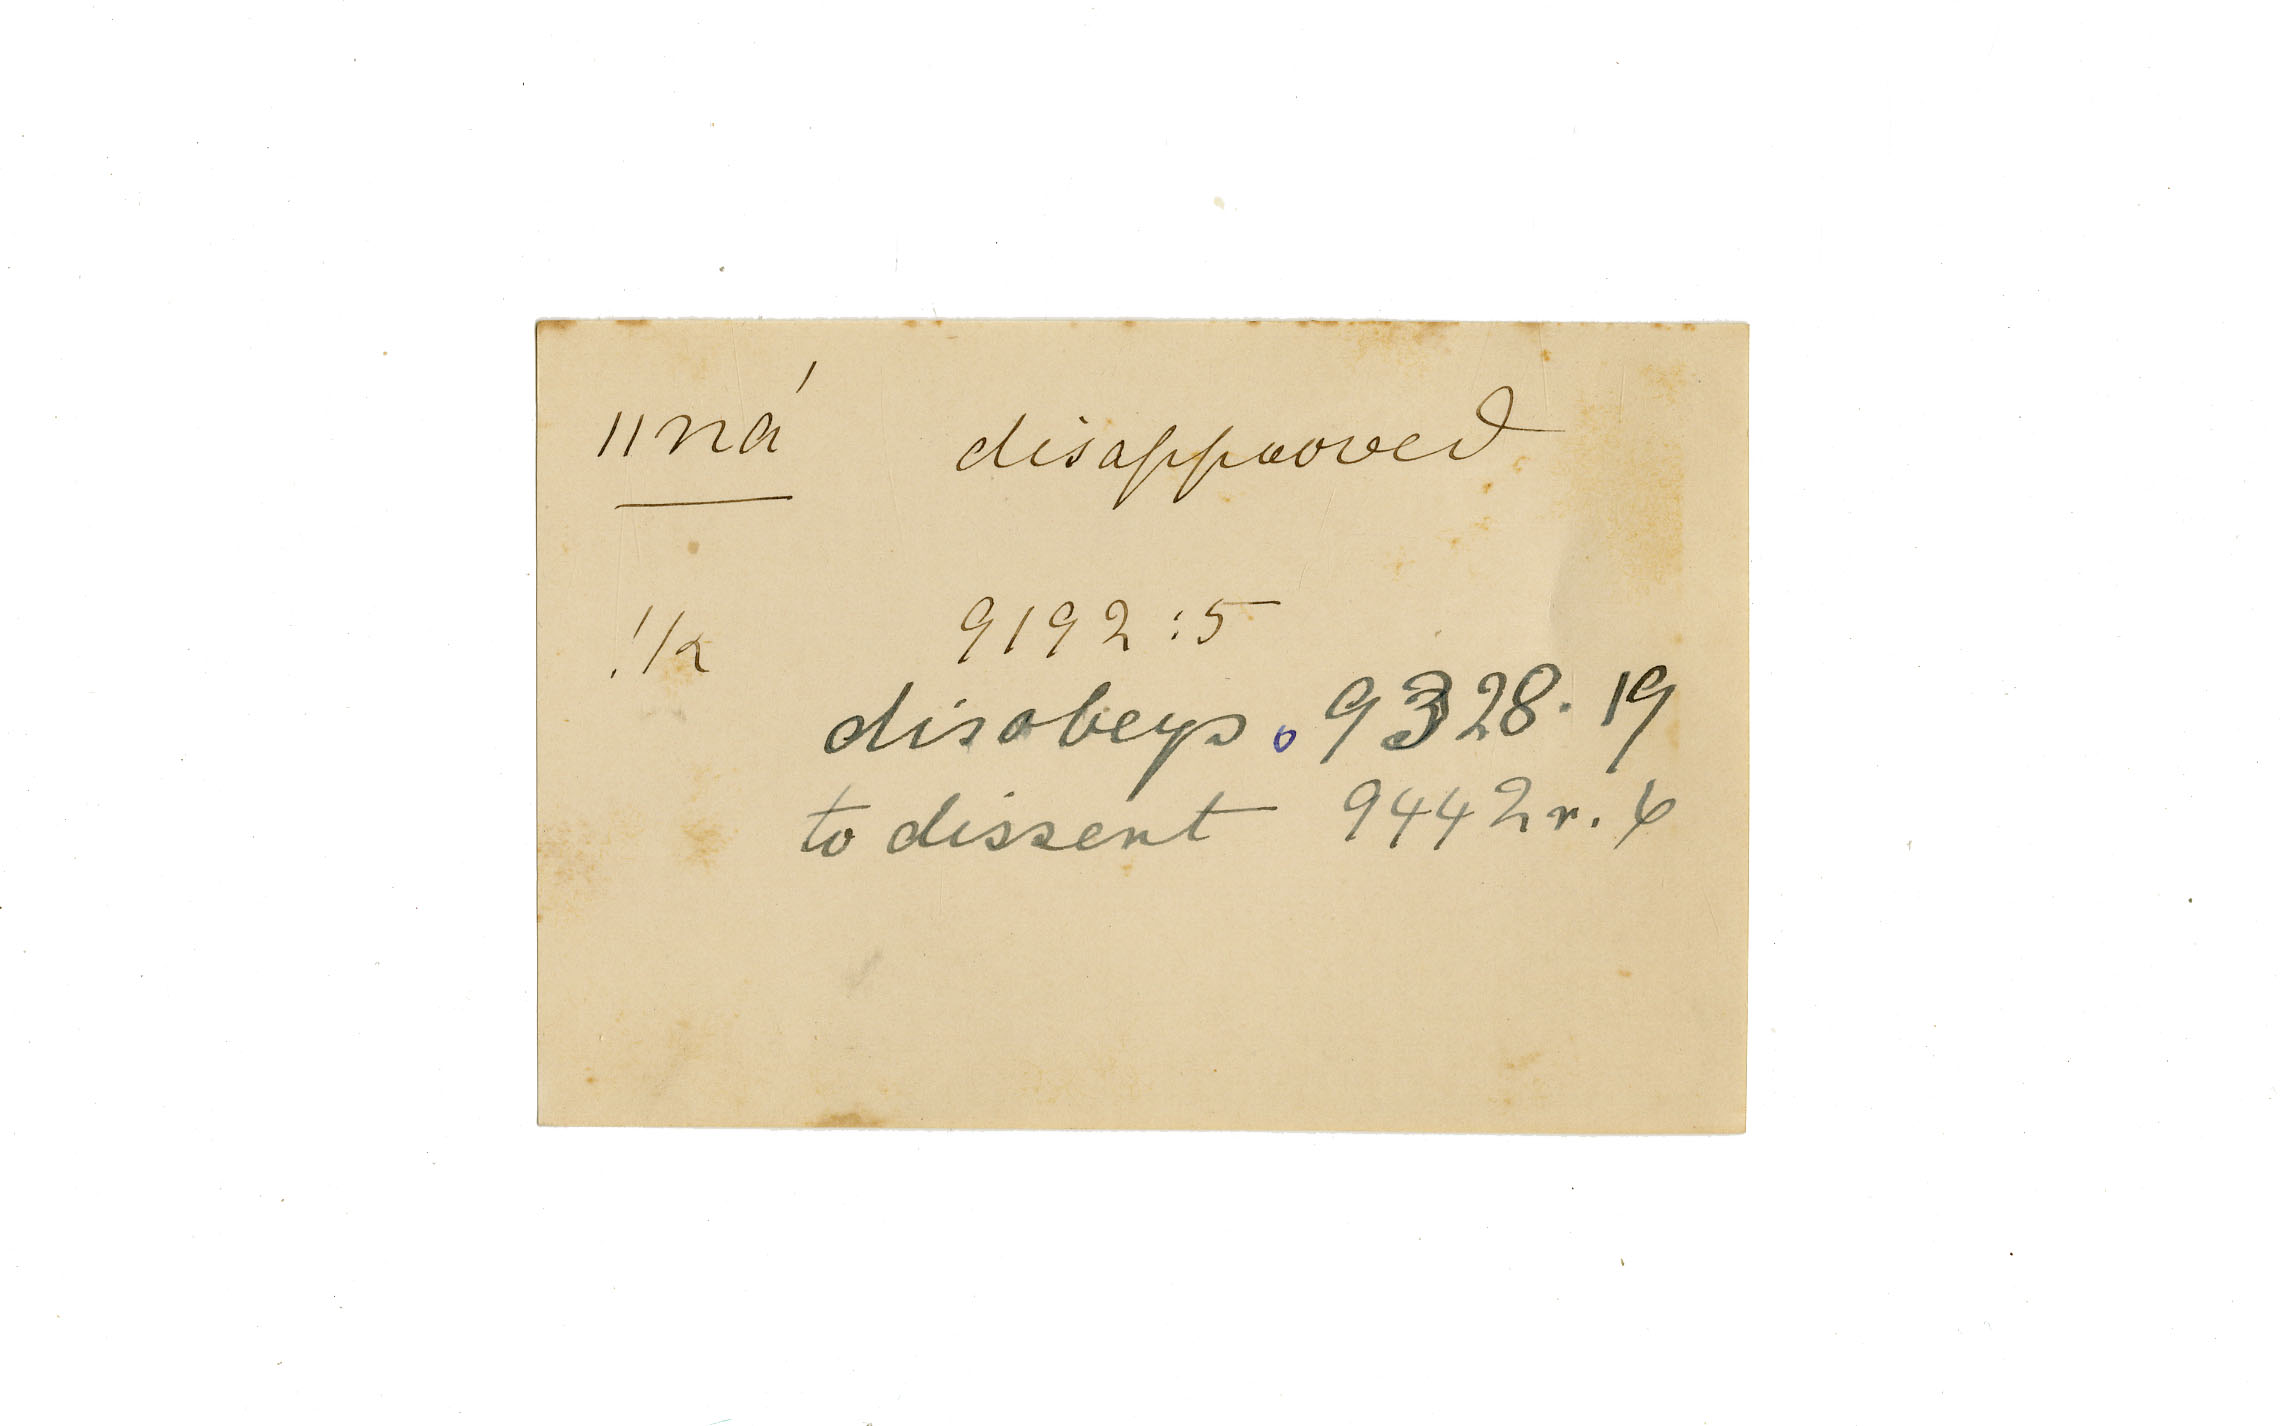 ǁná disapproved
!k 9192:5
disobeys. 9328.19
to dissent 9442r.6